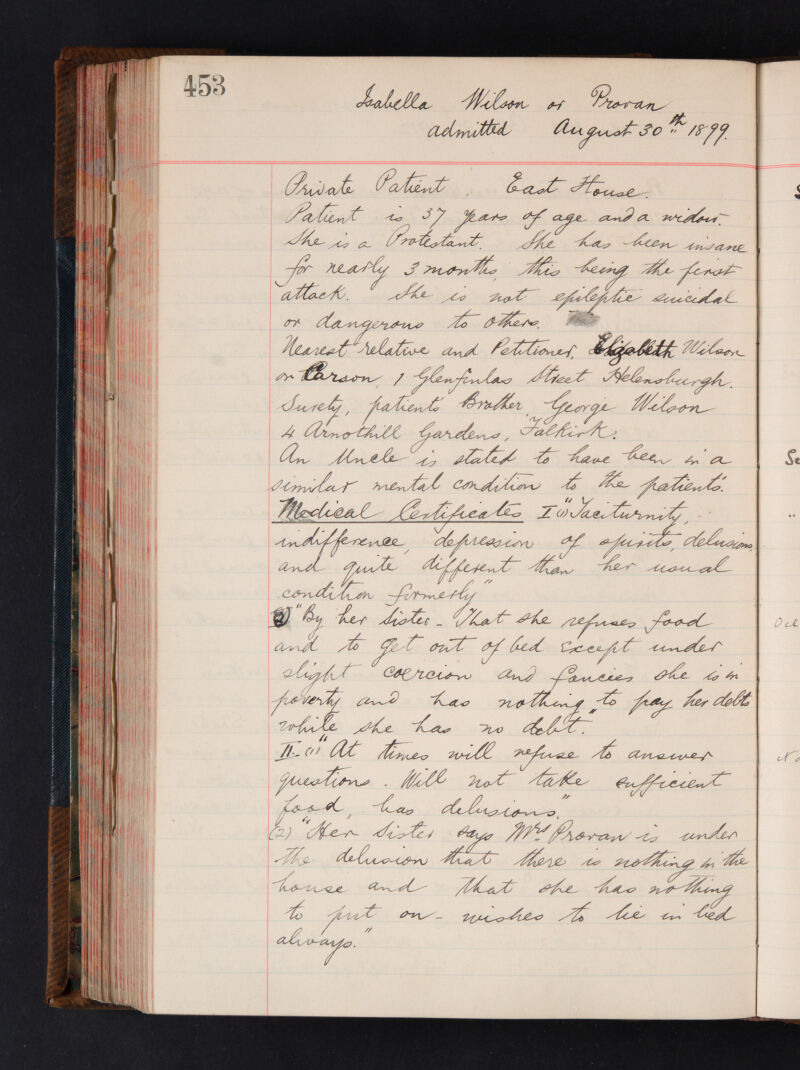 453
Isabella Wilson or Provan
admitted August 30th 1899.
Private Patient. East House.
Patient is 37 years of age and a widow.
She is a Protestant. She has been insane
for nearly 3 months, this being the first
attack. She is not epileptic suicidal
or dangerous to others.
Nearest relative and Petitioner, Elizabeth Wilson
or Carson, 1 Glenfinlas Street Helensburgh.
Surety, patient's Brother George Wilson
4 Arnothill Gardens, Falkirk.
An Uncle is stated to have been in a
similar mental condition to the patient's.
Medical Certificates I (1) "Taciturnity,
indifference, depression of spirits, delusions,
and quite different than her usual
condition formerly"
(2) "By her Sister - That she refuses food
and to get out of bed except under
slight coercion and fancies she is in
poverty and has nothing to pay her debts
while she has no debt."
II. (1) "At times will refuse to answer
questions. Will not take sufficient
food, has delusions."
(2) "Her Sister says Mrs Provan is under
the delusion that there is nothing in the
house and that she has nothing
to put on - wishes to lie in bed
always."